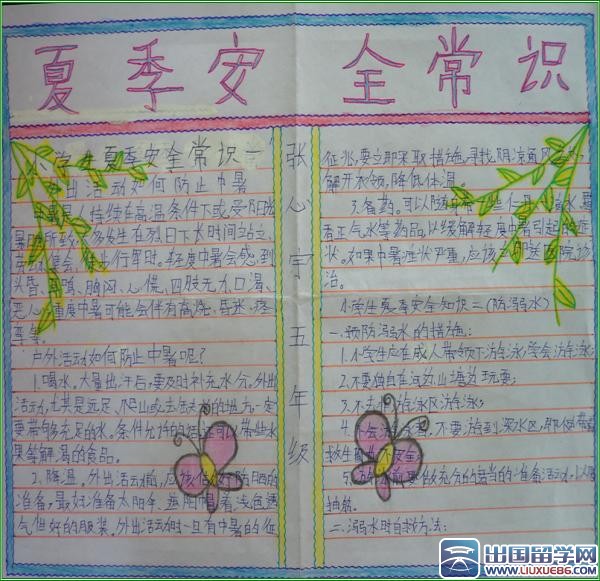 夏季安全常识
小学生夏季安全常识一
外出活动如何防止中暑
中暑是人持续在高温条件下或受阳光
暑晒所致,多发生在烈日下长时间站立、
集会、徒步行军时。轻度中暑会感到
头昏、耳鸣、胸闷、心慌、四肢无力、口渴、
恶心;重度中暑可能会伴有高烧、昏迷、痉
挛等。
户外活动如何防止中暑呢?
1.喝水。大量出汗后,要及时补充水分。外出
活动,尤其是远足、爬山或去的地方,一定
要带够充足的水。条件允许的话可以带些水
果等解渴的食品。
2、降温,外出活动前,应该做好防晒的
准备,最好准备太阳伞、遮阳帽,着浅色透
气性好的服装。外出活动时一旦有中暑的征
张心宇五年级
征兆,要立即采取措施,寻找阴凉通风
解开衣领,降低体温。
3.备药。可以随身带一些仁丹、
香正气水等药品,以缓解轻度中暑引起的症
状。如果中暑症状严重,应该立即送医院诊
治。
小学生夏季安全知识二(防溺水)
一.预防溺水的措施:
1.小学生应在成人带领下游泳,学会游泳;
2.不要独自在河边、山塘边玩耍;
3.不去非游泳区游泳;
4.不会游泳者,不要游到深水区,即使带着
救生圈也不安全;
5.游泳前要做充分的适当的准备活动,以防
抽筋。
二.溺水时自救方法:
出国留学网
WWW.LIUXUE86.COM